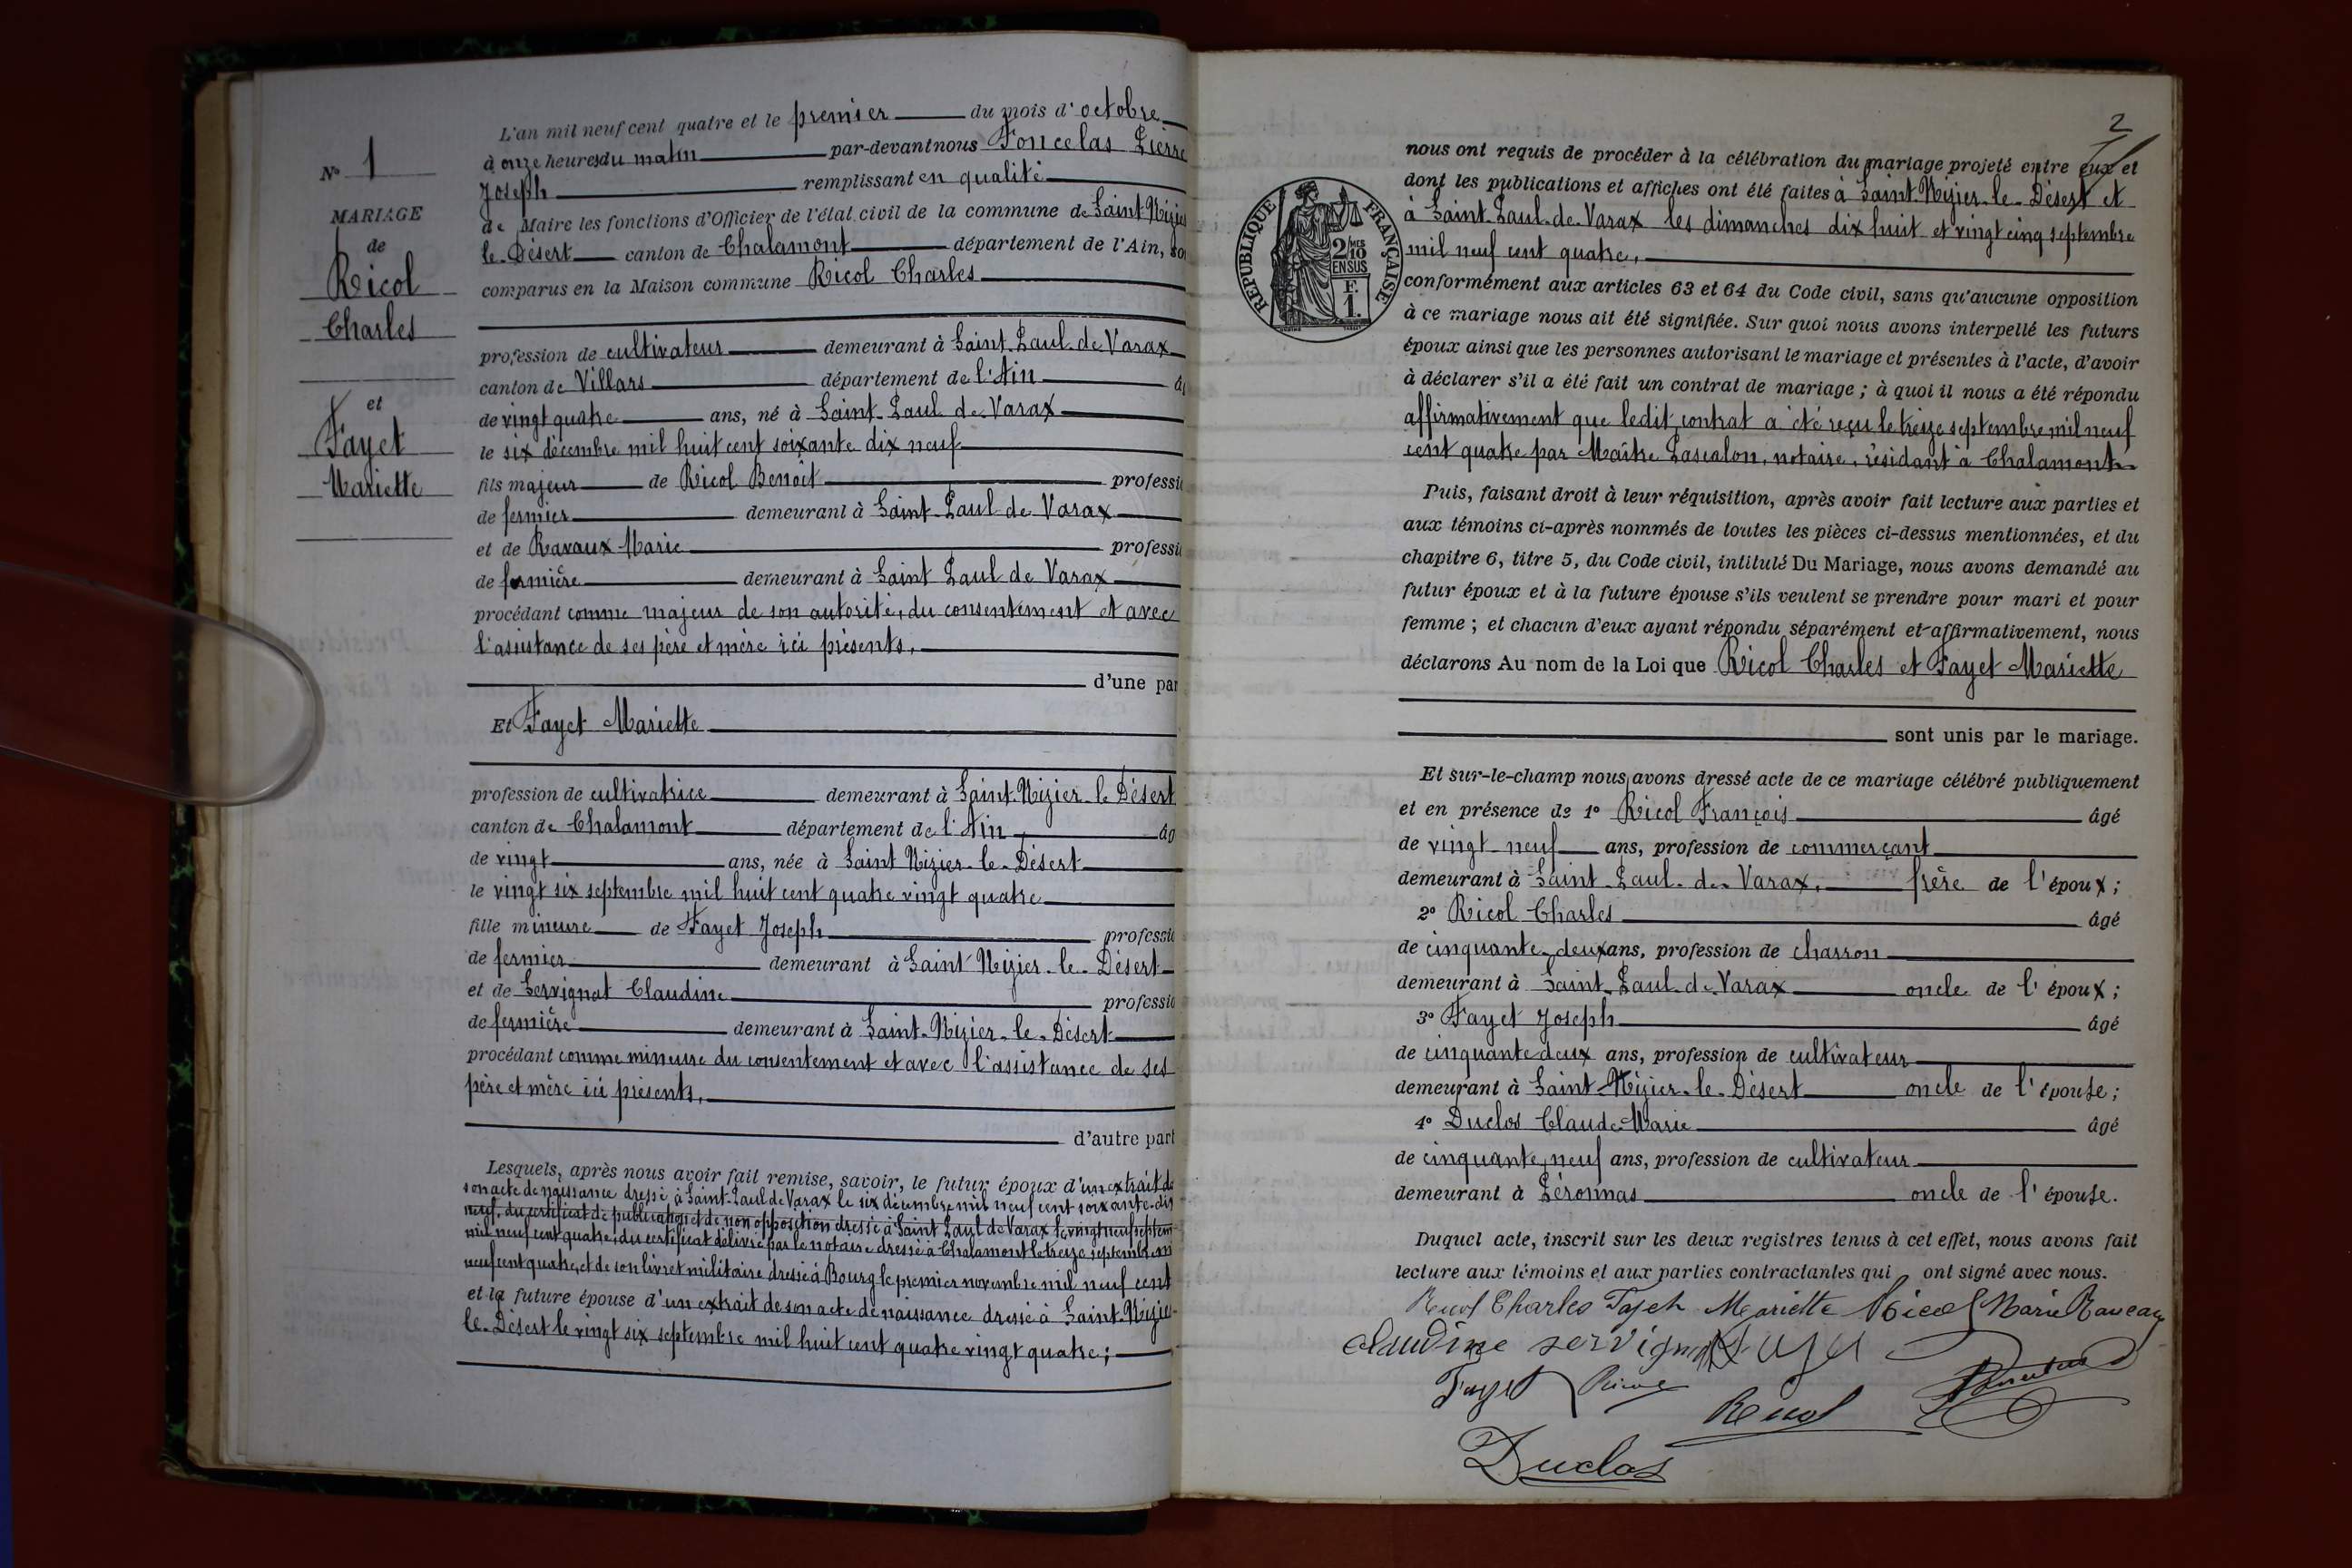 N° 1
MARIAGE
de
Ricol
Charles
et
Fayet
Mariette
L'an mil neuf cent quatre et le premier du mois d'octobre
à onze heures du matin par-devant nous Foncelas Pierre
Joseph remplissant en qualité
de Maire les fonctions d'Officier de l'état civil de la commune de Saint-Nizier
le-Désert canton de Chalamont département de l'Ain, so
comparus en la Maison commune Ricol Charles
profession de cultivateur demeurant à Saint-Paul-de-Varax
canton de Villars département de l'Ain âg
de vingt quatre ans, né à Saint-Paul de Varax
le six décembre mil huit cent soixante dix neuf
fils majeur de Ricol Benoît professi
de fermier demeurant à Saint-Paul de Varax
et de Ravaux Marie professi
de fermière demeurant à Saint Paul de Varax
procédant comme majeur de son autorité, du consentement et avec
l'assistance de ses père et mère ici présents,
d'une par
Et Fayet Mariette
profession de cultivatrice demeurant à Saint-Nizier-le Désert
canton de Chalamont département de l'Ain, âg
de vingt ans, née à Saint Nizier-le-Désert
le vingt six septembre mil huit cent quatre vingt quatre
fille mineure de Fayet Joseph professi
de fermier demeurant à Saint Nizier-le-Désert
et de Servignat Claudine professio
de fermière demeurant à Saint-Nizier-le-Désert
procédant comme mineure du consentement et avec l'assistance de ses
père et mère ici présents,
d'autre part
Lesquels, après nous avoir fait remise, savoir, le futur époux d'un extrait de
son acte de naissance dressé à Saint-Paul de Varax le six décembre mil neuf cent soixante-dix
neuf, du certificat de publication et de non opposition dressé à Saint Paul de Varax le vingt neuf septem
mil neuf cent quatre, du certificat délivré par le notaire dressé à Chalamont le treize septembre m
neuf cent quatre, et de son livret militaire dressé à Bourg le premier novembre mil neuf cent
et la future épouse d'un extrait de son acte de naissance dressé à Saint-Nizier
le-Désert le vingt six septembre mil huit cent quatre vingt quatre;
2
nous ont requis de procéder à la célébration du mariage projeté entre eux et
dont les publications et affiches ont été faites à Saint-Nizier-le-Désert et
à Saint-Paul-de-Varax les dimanches dix huit et vingt cinq septembre
mil neuf cent quatre,
RÉPUBLIQUE FRANÇAISE
2/10 MES
EN SUS
F.
1.
conformément aux articles 63 et 64 du Code civil, sans qu'aucune opposition
à ce mariage nous ait été signifiée. Sur quoi nous avons interpellé les futurs
époux ainsi que les personnes autorisant le mariage et présentes à l'acte, d'avoir
à déclarer s'il a été fait un contrat de mariage; à quoi il nous a été répondu
affirmativement que ledit contrat a été reçu le treize septembre mil neuf
cent quatre par Maître Lascalon, notaire, résidant à Chalamont.
Puis, faisant droit à leur réquisition, après avoir fait lecture aux parties et
aux témoins ci-après nommés de toutes les pièces ci-dessus mentionnées, et du
chapitre 6, titre 5, du Code civil, intitulé Du Mariage, nous avons demandé au
futur époux et à la future épouse s'ils veulent se prendre pour mari et pour
femme; et chacun d'eux ayant répondu séparément et affirmativement, nous
déclarons Au nom de la Loi que Ricol Charles et Fayet Mariette
sont unis par le mariage.
Et sur-le-champ nous avons dressé acte de ce mariage célébré publiquement
et en présence de 1° Ricol François âgé
de vingt-neuf ans, profession de commerçant
demeurant à Saint-Paul-de-Varax, frère de l'époux;
2° Ricol Charles âgé
de cinquante-deux ans, profession de charron
demeurant à Saint-Paul-de-Varax oncle de l'époux;
3° Fayet Joseph âgé
de cinquante deux ans, profession de cultivateur
demeurant à Saint-Nizier-le-Désert oncle de l'épouse;
4° Duclos Claude-Marie âgé
de cinquante neuf ans, profession de cultivateur
demeurant à Péronnas oncle de l'épouse.
Duquel acte, inscrit sur les deux registres tenus à cet effet, nous avons fait
lecture aux témoins et aux parties contractantes qui ont signé avec nous.
Ricol Charles Fayet Mariette Ricol Marie Raveaux
claudine servignat
Fayet Ricol
Ricol
Duclos